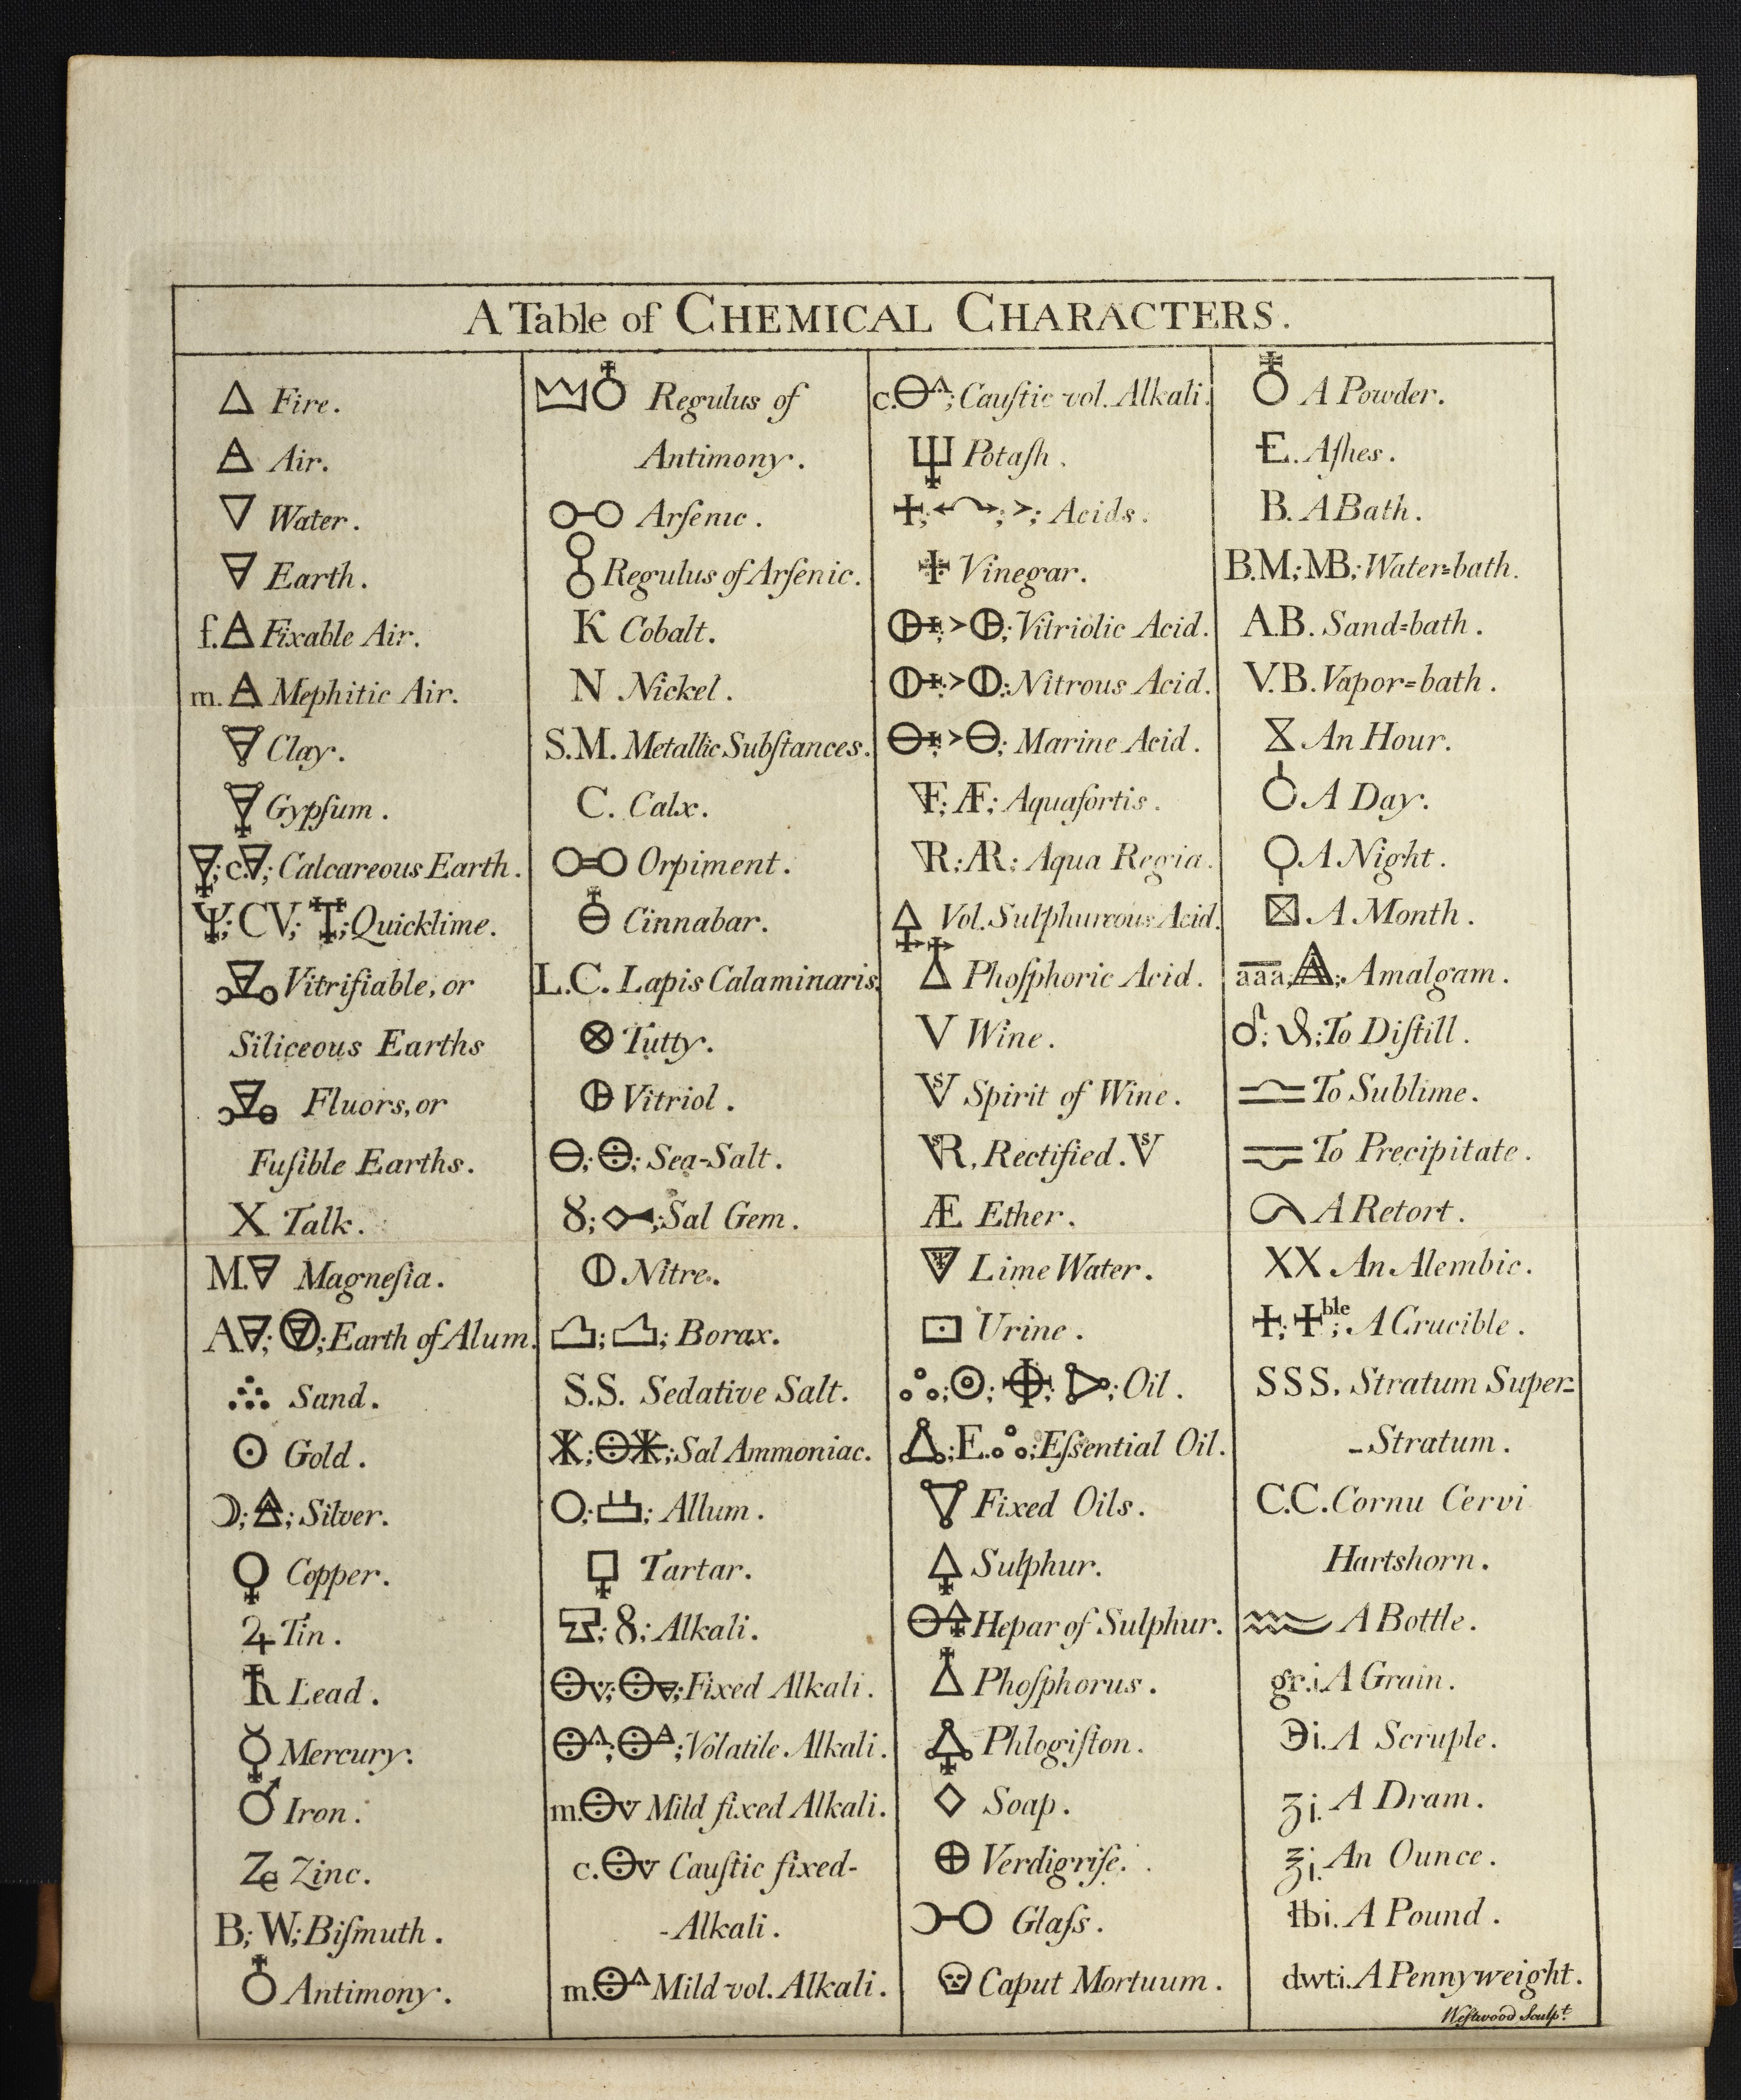 A Table of CHEMICAL CHARACTERS.
🜂 Fire.
🜁 Air.
🜄 Water.
🜃 Earth.
f.🜁 Fixable Air.
m.🜁 Mephitic Air.
Clay.
Gypſum.
c.🜃; Calcareous Earth.
CV; Quicklime.
Vitrifiable, or
Siliceous Earths
Fluors, or
Fuſible Earths.
X Talk.
M.🜃 Magneſia.
A🜃; Earth of Alum.
Sand.
☉ Gold.
☽; Silver.
♀ Copper.
♃ Tin.
♄ Lead.
☿ Mercury.
♂ Iron.
Ze Zinc.
B; W; Biſmuth.
♁ Antimony.
♁ Regulus of
Antimony.
Arſenic.
Regulus of Arſenic.
K Cobalt.
N Nickel.
S.M. Metallic Subſtances.
C. Calx.
Orpiment.
Cinnabar.
L.C. Lapis Calaminaris.
⊗ Tutty.
Vitriol.
Sea-Salt.
8; Sal Gem.
Nitre.
Borax.
S.S. Sedative Salt.
Sal Ammoniac.
Allum.
Tartar.
8; Alkali.
Fixed Alkali.
Volatile Alkali.
m. Mild fixed Alkali.
c. Cauſtic fixed-
-Alkali.
m. Mild vol. Alkali.
c. Cauſtic vol. Alkali.
Potaſh.
Acids.
Vinegar.
Vitriolic Acid.
Nitrous Acid.
Marine Acid.
ÆF; Aquafortis.
ÆR; Aqua Regia.
Vol. Sulphureous Acid.
Phoſphoric Acid.
V Wine.
Spirit of Wine.
Rectified.
Æ Ether.
Lime Water.
Urine.
Oil.
E. Eſsential Oil.
Fixed Oils.
Sulphur.
Hepar of Sulphur.
Phoſphorus.
Phlogiſton.
Soap.
Verdigriſe.
Glaſs.
Caput Mortuum.
A Powder.
E. Aſhes.
B. A Bath.
B.M; MB; Water=bath.
A.B. Sand=bath.
V.B. Vapor=bath.
An Hour.
A Day.
A Night.
A Month.
aaa; Amalgam.
To Diſtill.
To Sublime.
To Precipitate.
A Retort.
XX An Alembic.
ble; A Crucible.
SSS. Stratum Super=
-Stratum.
C.C. Cornu Cervi
Hartshorn.
A Bottle.
gr.i. A Grain.
℈i. A Scruple.
ʒi. A Dram.
℥i. An Ounce.
℔i. A Pound.
dwt.i. A Pennyweight.
Weſtwood Sculpt.